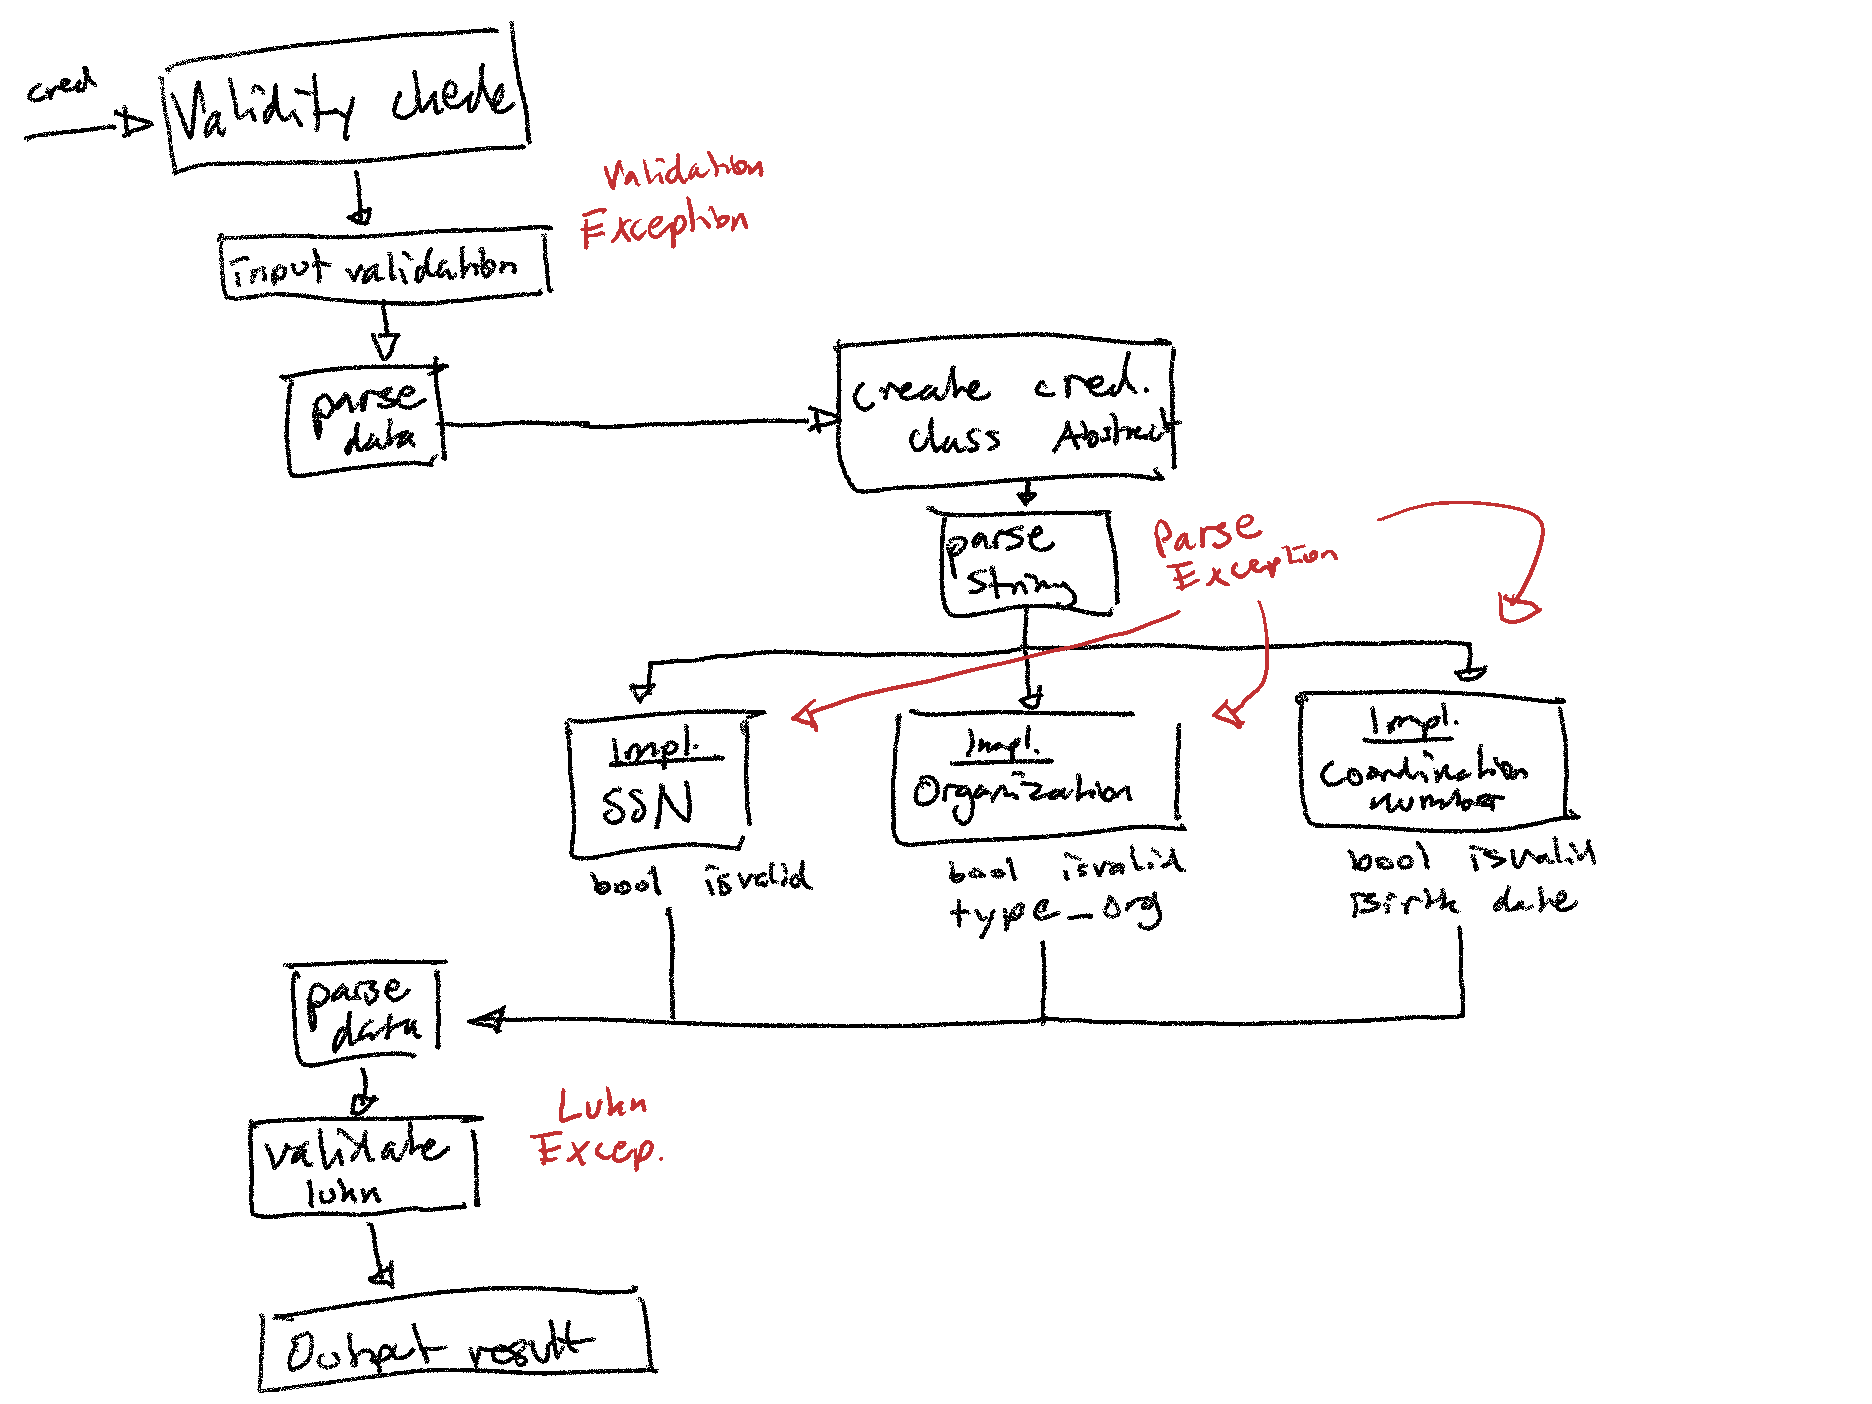 cred
Validity check
Validation
Exception
input validation
parse
data
create cred.
class Abstract
parse
string
Parse
Exception
Impl.
SSN
bool isvalid
Impl.
Organization
bool isvalid
type_org
Impl.
Coordination
number
bool isvalid
Birth date
parse
data
Luhn
Excep.
validate
luhn
Output result